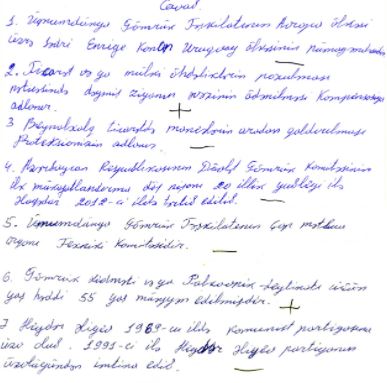 Cavab.
1. Ümumdünya Gömrük Təşkilatının Avropa ölkəsi
üzrə Sədri Enrige Kanon Uruguay ölkəsinin nümayəndəsidir
—
2. Ticarət və ya mülki öhdəliklərin pozulması
nəticəsində dəymiş ziyanın əvəzinin ödənilməsi Kompensasiya
adlanır.
+
3 Beynəlxalq ticarətdə maneələrin aradan qaldırılması
Proteksionizm adlanır.
—
4. Azərbaycan Respublikasının Dövlət Gömrük Komitəsinin
2012-ci ildə təsis edilib.
—
5. Ümumdünya Gömrük Təşkilatının
orqanı Texniki Komitəsidir.
—
6. Gömrük xidməti üçün
yaş həddi 55 yaş müəyyən edilmişdir.
+
7 Heydər Əliyev 1969-cu ildə kommunist partiyasına
üzv olub. 1991-ci ildə Heydər Əliyev partiyanın
üzvlüyündən imtina edib.
—